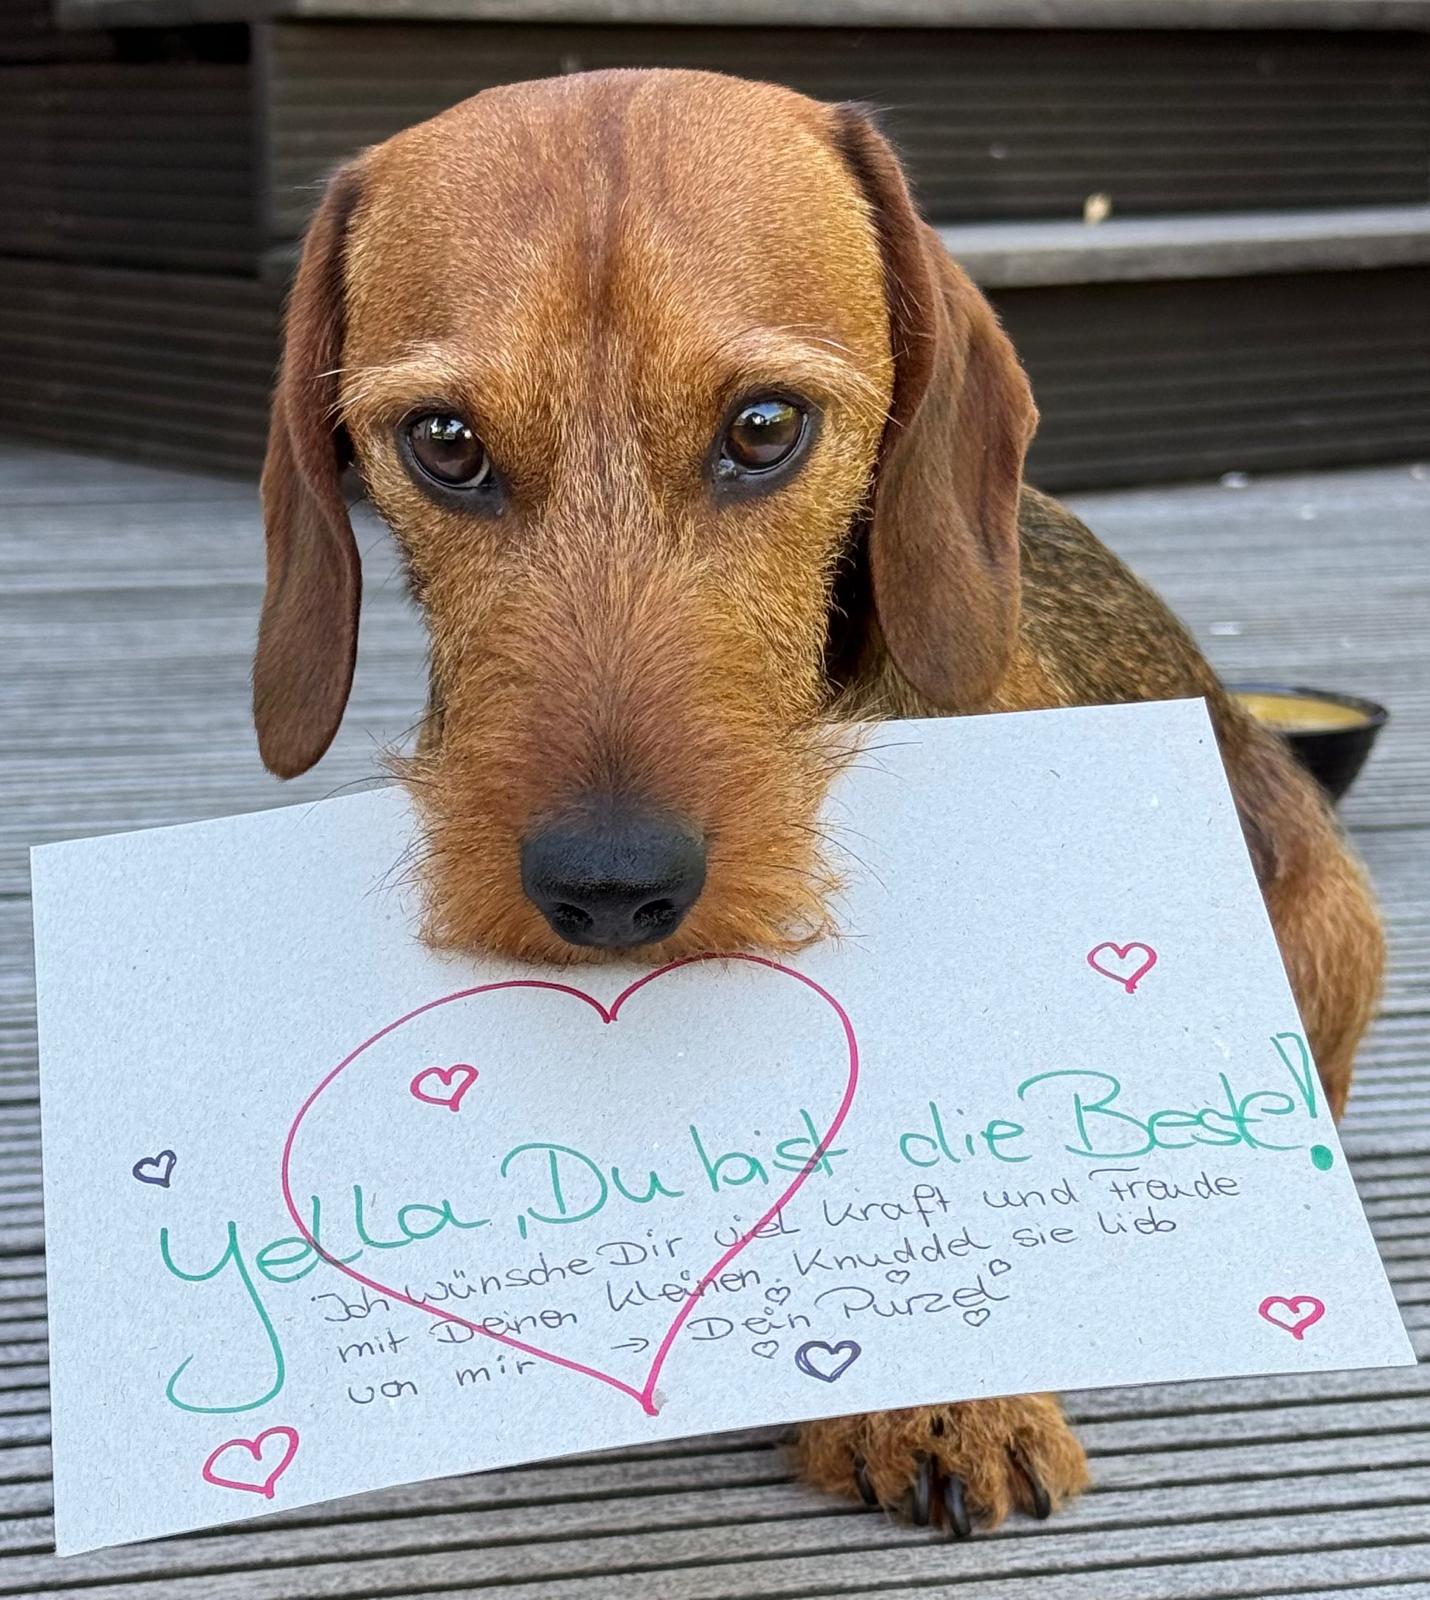 Yella, Du bist die Beste!
Ich wünsche Dir viel Kraft und Freude
mit Deinen kleinen. Knuddel sie lieb
von mir → Dein Purzel